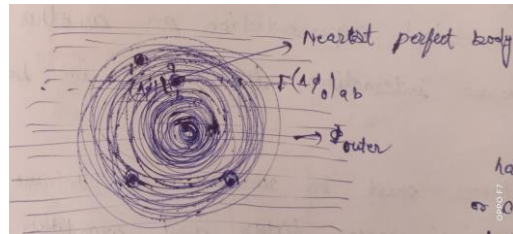 Nearest perfect body
Γ(Δφ₀)ab
Φouter
ha
or c
OPPO F7